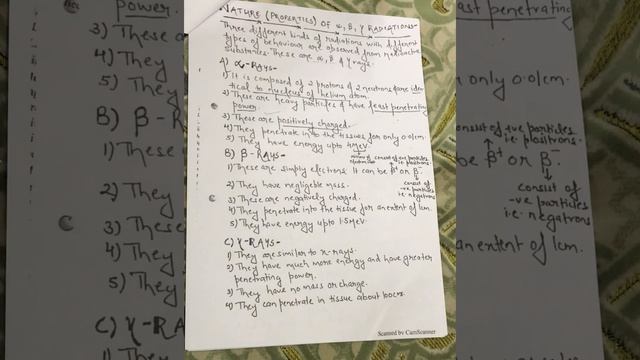 NATURE (PROPERTIES) OF α, β, γ RADIATIONS-
Three different kinds of radiations with different
types of behaviour are observed from radioactive
substances. These are α, β & γ rays.
A) α-RAYS-
1) It is composed of 2 protons & 2 neutrons & are iden-
tical to nucleus of helium atom.
2) These are heavy particles & have least penetrating
power.
3) These are positively charged.
4) They penetrate into the tissues for only 0.01cm.
5) They have energy upto 4 MeV
B) β-RAYS-
consist of +ve particles
i.e. positrons.
1) These are simply electrons. It can be β+ or β-.
consist of
-ve particles
i.e. negatrons
2) They have negligible mass.
3) These are negatively charged.
4) They penetrate into the tissue for an extent of 1cm.
5) They have energy upto 1.5 MeV.
C) γ-RAYS-
1) They are similar to x-rays.
2) They have much more energy and have greater
penetrating power.
3) They have no mass or charge.
4) They can penetrate in tissue about
Scanned by CamScanner
power.
3) These
4) They
5) They
B) β-
1) These
2) They
3) These
4) They
5) They
C) γ-RA
1) They
east penetrating
only 0.01cm.
onsist of +ve particles
i.e. positrons.
be β+ or β-
consist of
-ve particles
i.e. negatrons
an extent of 1cm.